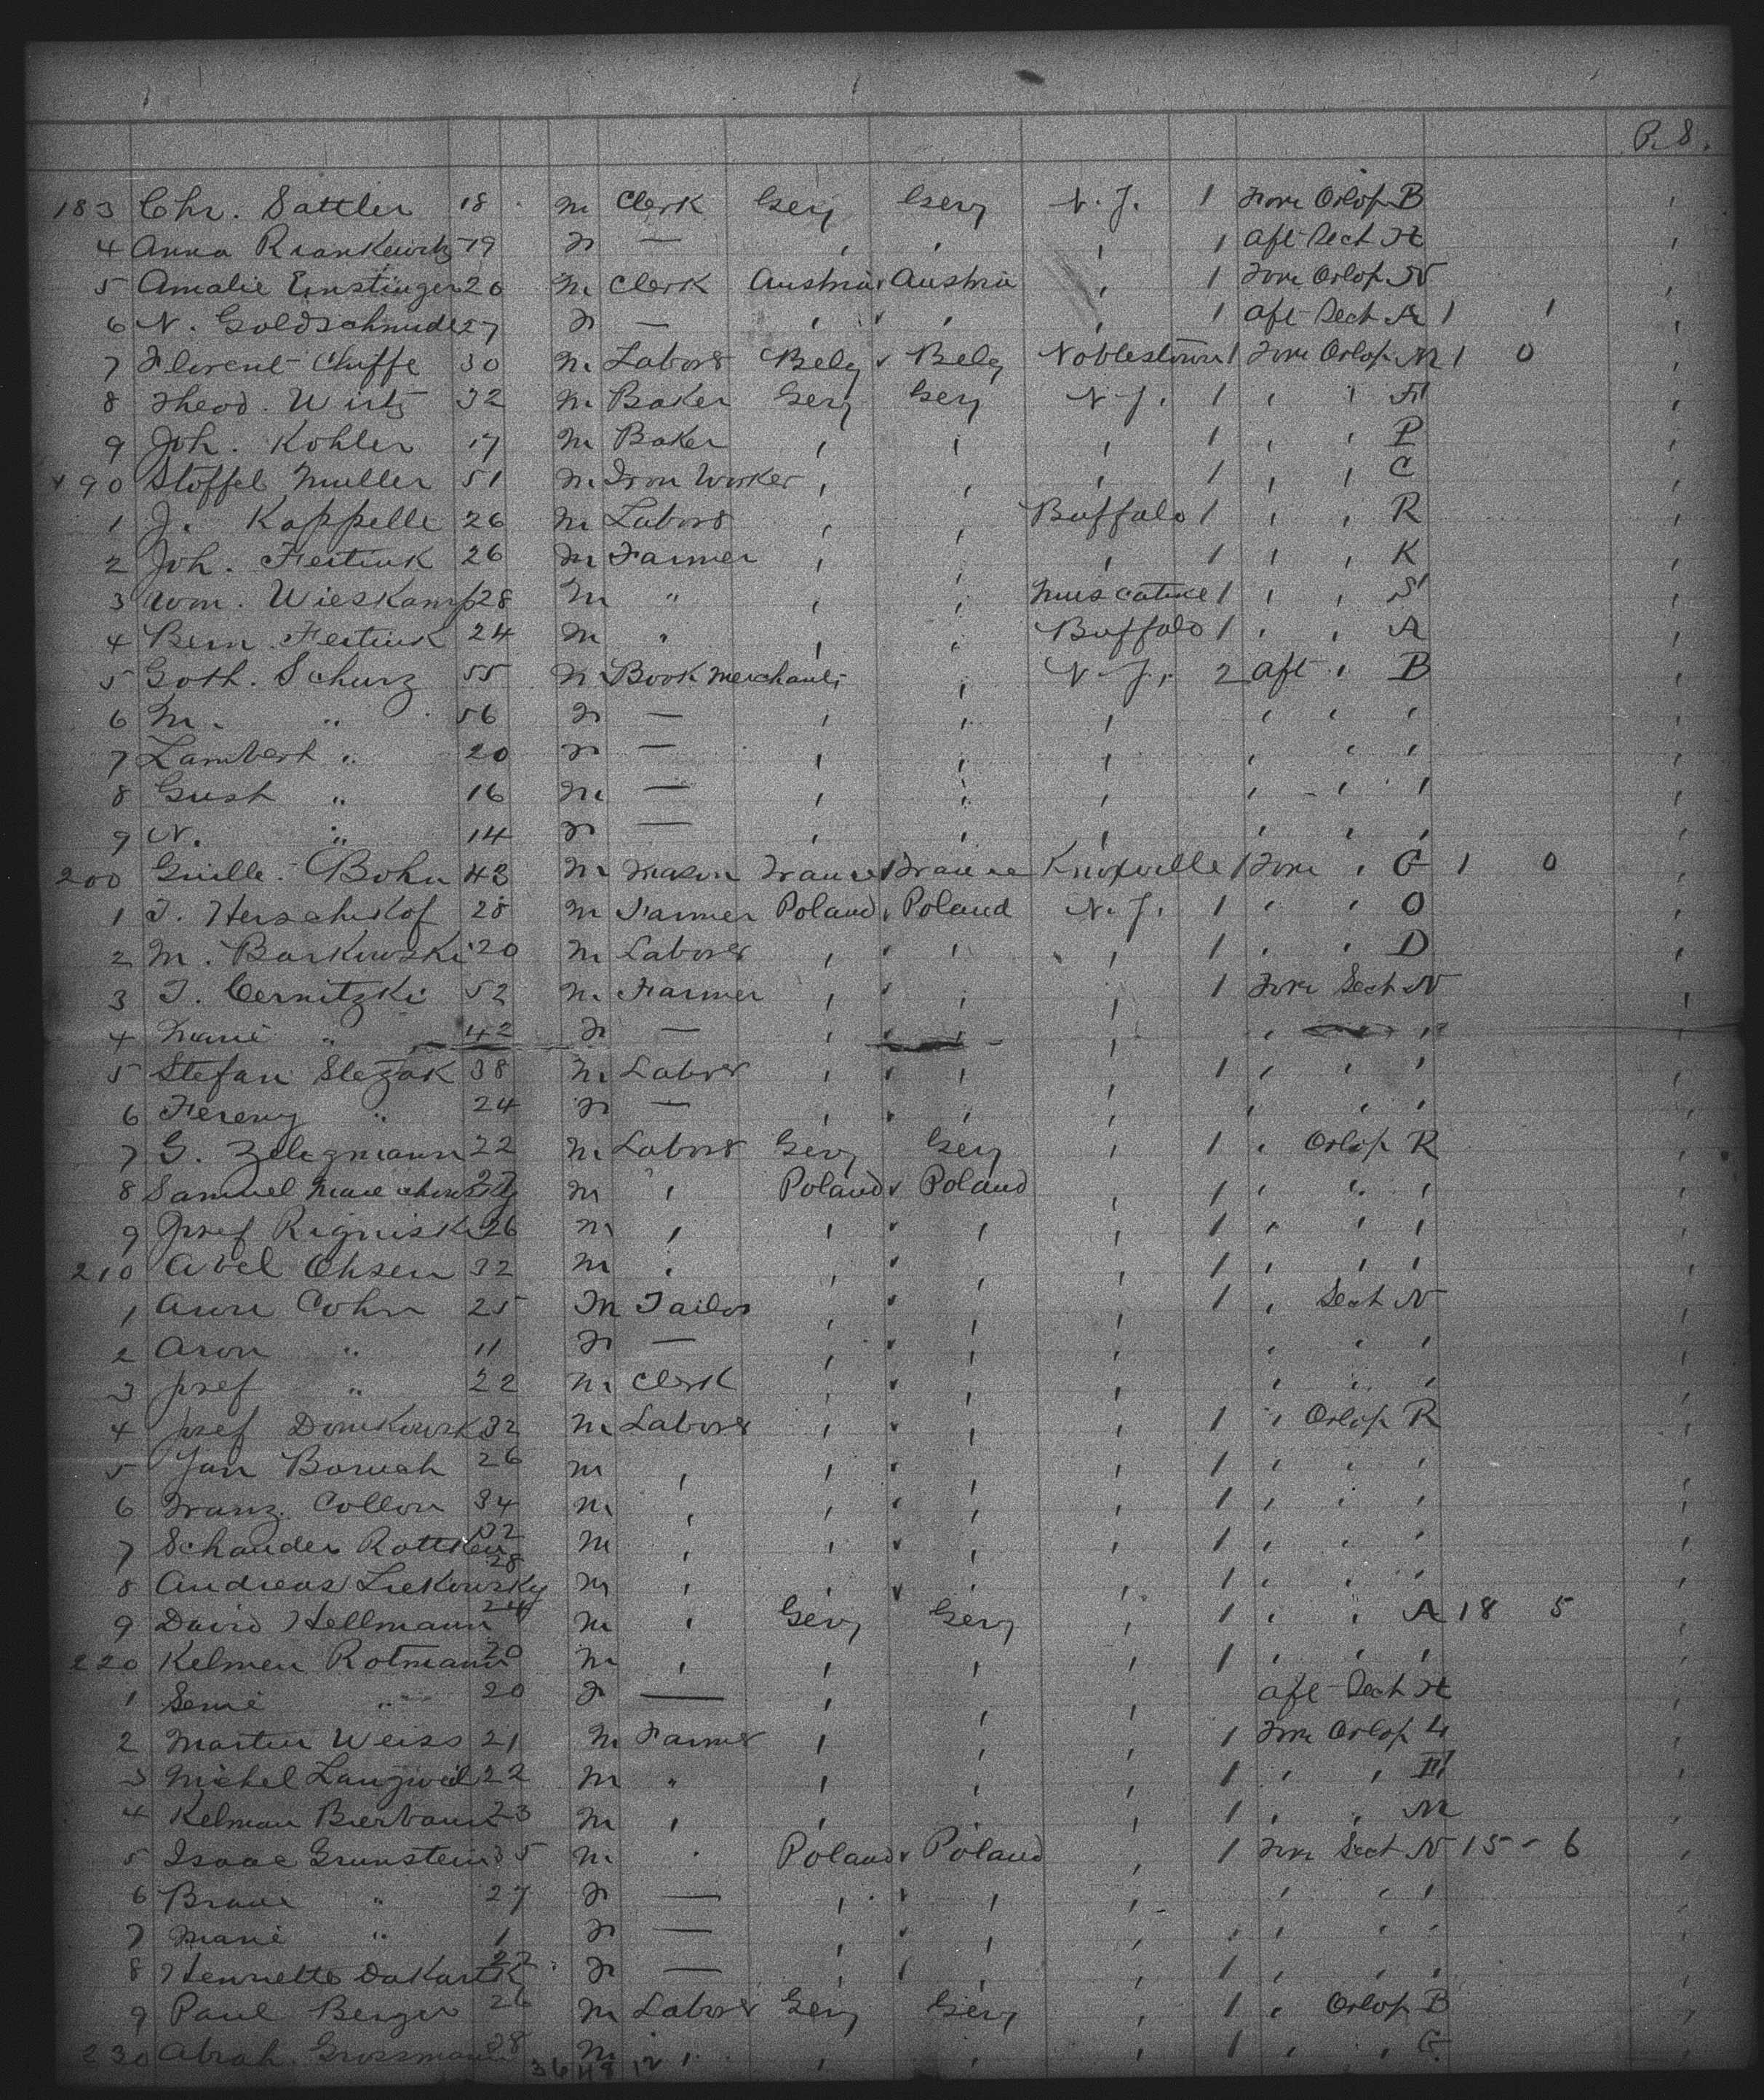 P. 8.
183 Chr. Sattler 18 m Clerk Gery Gery N.Y. 1 Fore Orlop B
4 Anna Rrankewitz 19 F — , , , 1 Aft Deck H
5 Amalie Ernstinger 20 m Clerk Austria Austria , 1 Fore Orlop N
6 N. Goldschmidt 27 F — , , , 1 Aft Deck A 1 1
7 Florent Chuffe 30 m Labors Belg Belg Noblestown 1 Fore Orlop M 1 0
8 Theod. Wirtz 32 m Baker Gery Gery N.Y. 1 , , F
9 Joh. Kohler 17 m Baker , , , 1 , , P
190 Stoffel Muller 51 m Iron Worker , , , 1 , , C
1 J. Kappelle 26 m Labors , , Buffalo 1 , , R
2 Joh. Feitink 26 m Farmer , , , 1 , , K
3 Wm. Wieskamp 28 m " , , Muscatine 1 , , S
4 Bern. Feitink 24 m " , , Buffalo 1 , , A
5 Goth. Schurz 55 m Book Merchant , , N.Y. 2 Aft , B
6 M. " 56 F — , , , , , ,
7 Lambert " 20 F — , , , , , ,
8 Gust " 16 m — , , , , , ,
9 N. " 14 F — , , , , , ,
200 Guille. Bohn 43 m Mason France France Knoxville 1 Fore , G 1 0
1 I. Herschkof 28 m Farmer Poland Poland N.Y. 1 , , O
2 M. Barkowski 20 m Laborer , , , 1 , , D
3 I. Cernitzki 52 m Farmer , , , 1 Fore Deck N
4 Marie " 42 F — , , , , ,
5 Stefan Slezak 38 m Laborer , , , 1 , , ,
6 Ferency " 24 F — , , , , , ,
7 G. Zelezmann 22 m Labors Gery Gery , 1 , Orlop R
8 Samuel m , Poland Poland , 1 , " ,
9 Josef Rigniski 26 m , , , , 1 , , ,
210 Abel Ohsen 32 m , , , , 1 , , ,
1 Cohn 25 m Tailor , , , 1 , Deck N
2 Aron " 11 F — , , , , , ,
3 Josef " 22 m Clerk , , , , , ,
4 Josef Domkowsk 32 m Laborer , , , 1 , Orlop R
5 Jan Boruch 26 m , , , , 1 , , ,
6 Franz Collon 34 m , , , , 1 , , ,
7 Schander Rottken 32 m , , , , 1 , , ,
8 Andreas Liekowsky 28 m , , , , 1 , , ,
9 David Hellmann 24 m , Gery Gery , 1 , , A 18 5
220 Kelmen Rotmann 20 m , , , , 1 , , ,
1 " 20 F — , , , Aft Deck H
2 Martin Weiss 21 m Farmer , , , 1 Fore Orlop H
3 Michel Langweil 22 m " , , , 1 , , E
4 Kelman Bierbaum 23 m , , , , 1 , , M
5 Isaac Grunstein 35 m , Poland Poland , 1 Fore Deck N 15 - 6
6 " 27 F — , , , , , ,
7 Marie " 1 F — , , , , , ,
8 Henriette Dakartk 22 F — , , , 1 , , ,
9 Paul Berger 26 m Laborer Gery Gery , 1 , Orlop B
230 Abrah. Grossmann 28 m , , , , 1 , , G
36 48 12